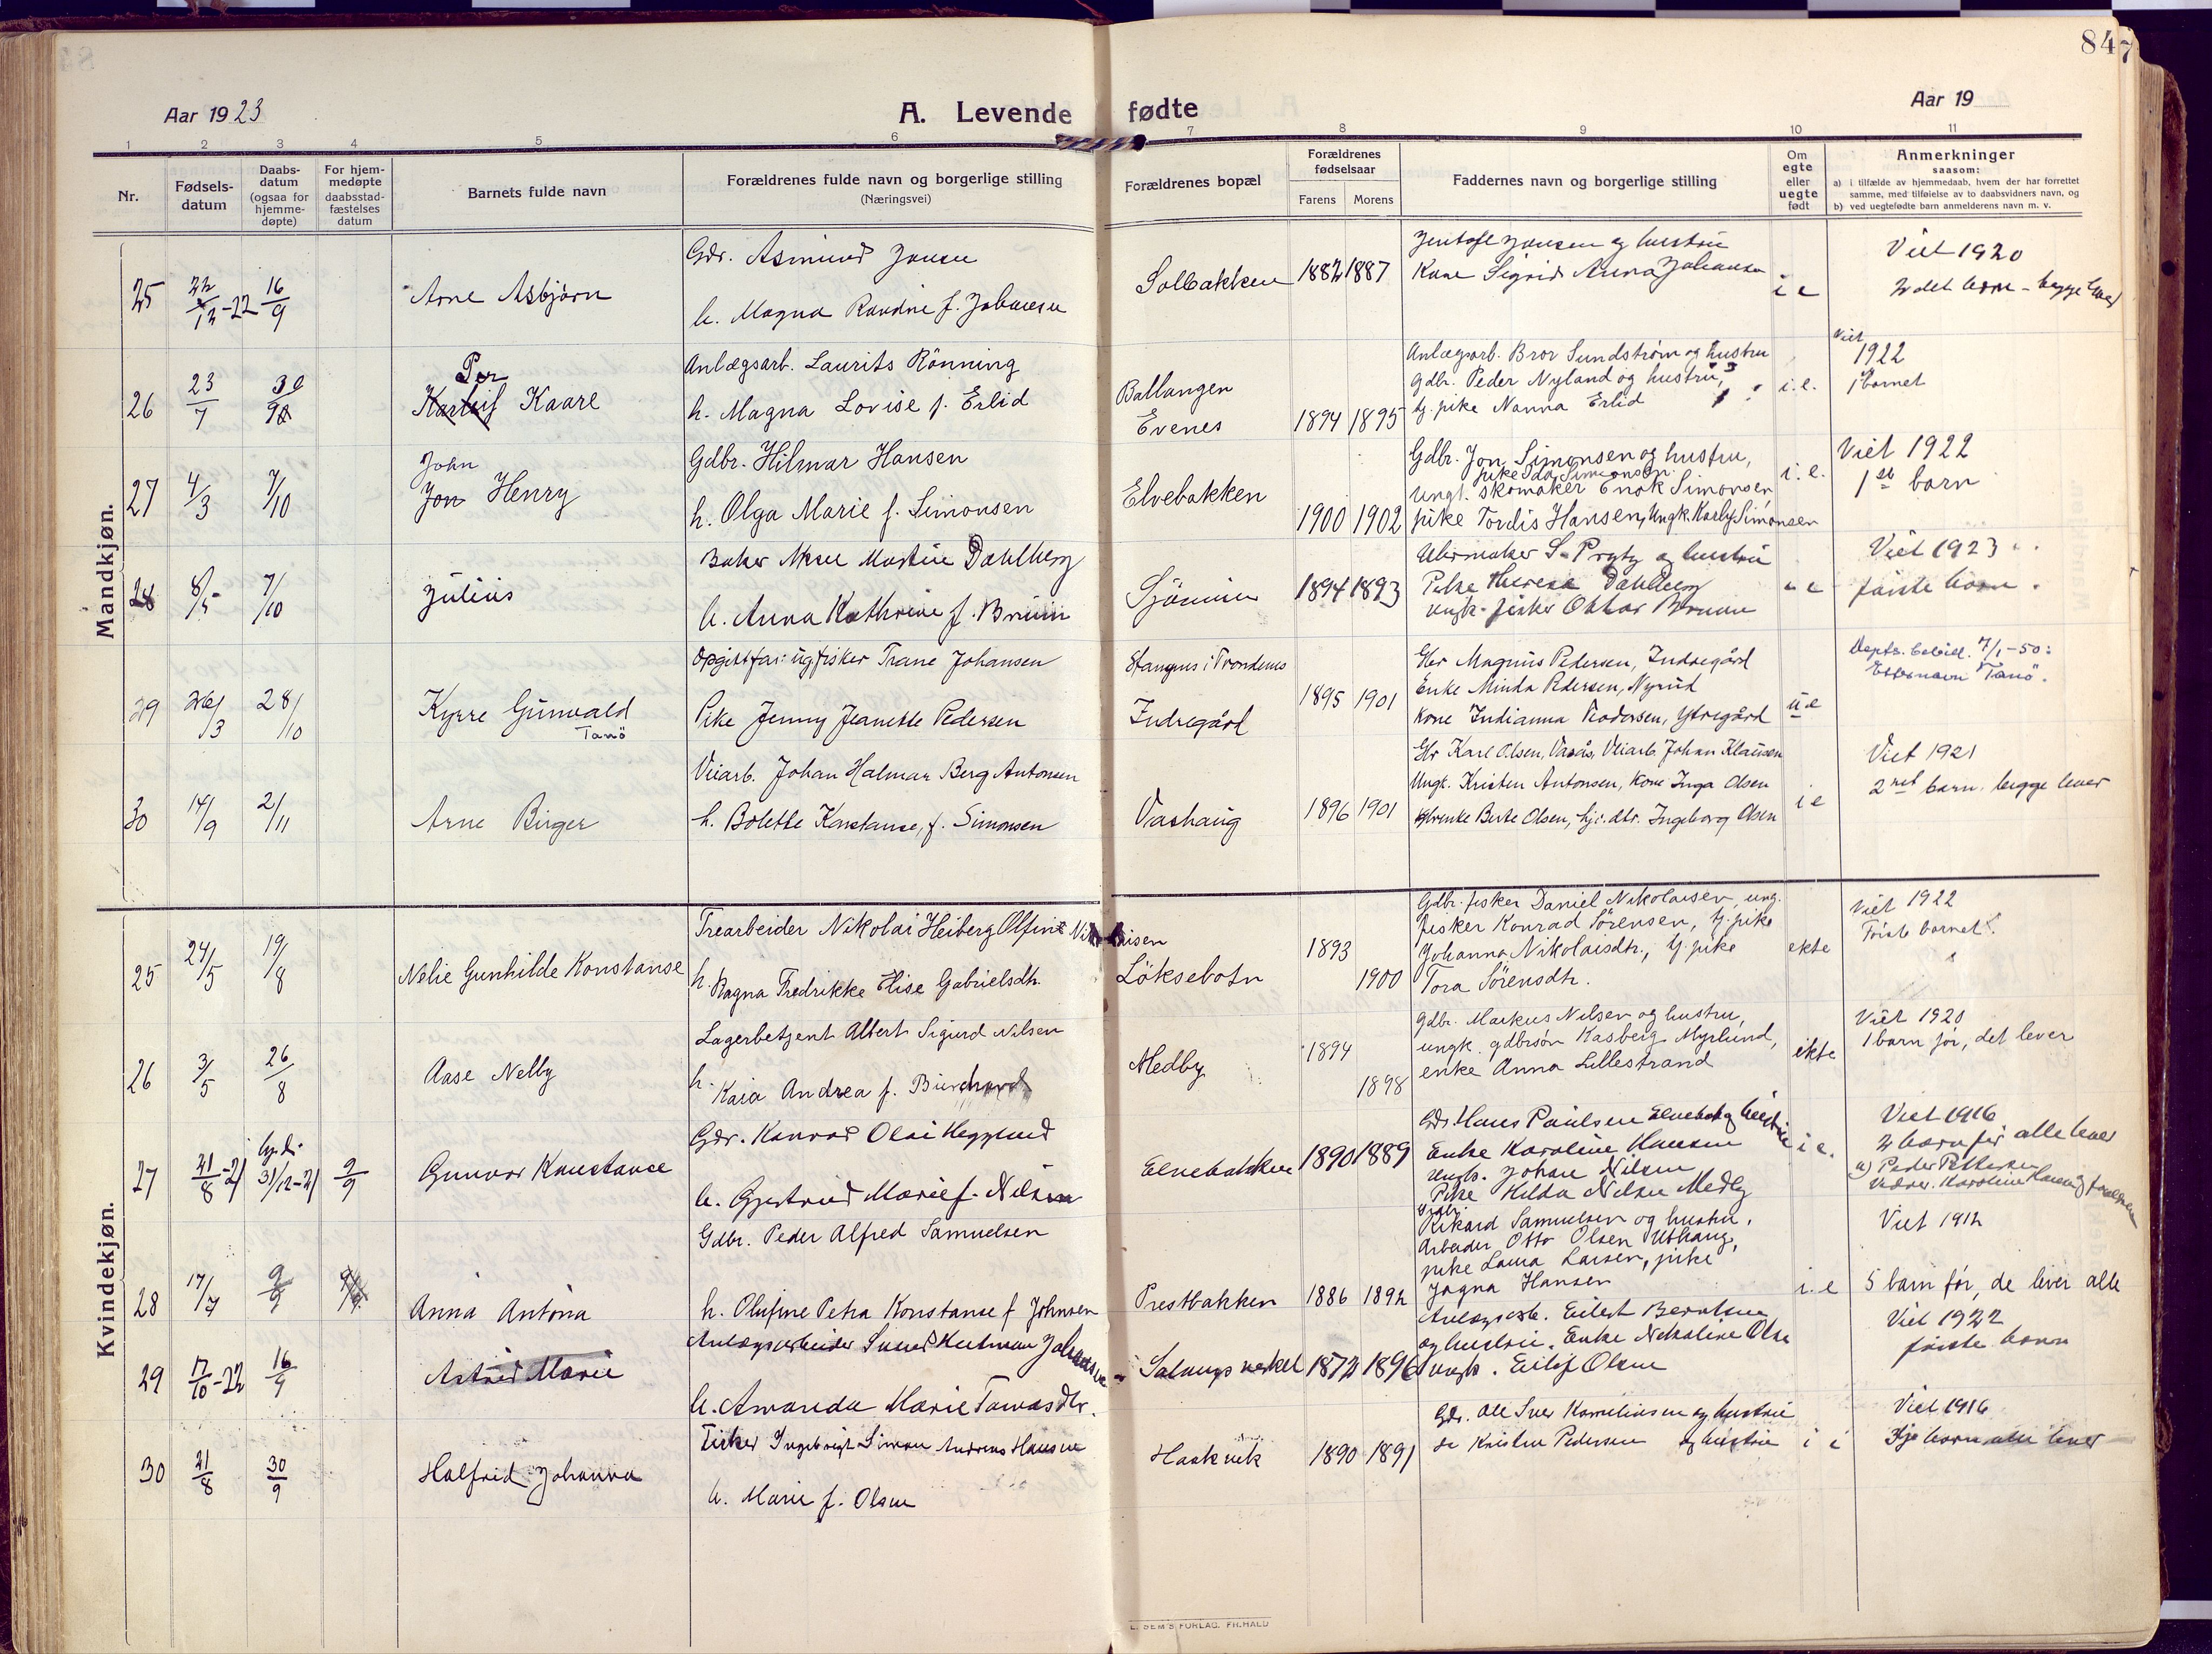 847
Aar 1923
A. Levende fødte
Aar 19
1 2 3 4 5 6 7 8 9 10 11
Nr.
Fødsels-
datum
Daabs-
datum
(ogsaa for
hjemme-
døpte)
For hjem-
medøpte
daabsstad-
fæstelses
datum
Barnets fulde navn
Forældrenes fulde navn og borgerlige stilling
(Næringsvei)
Forældrenes bopæl
Forældrenes
fødselsaar
Farens Morens
Faddernes navn og borgerlige stilling
Om
egte
eller
uegte
født
Anmerkninger
saasom:
a) i tilfælde av hjemmedaab, hvem der har forrettet
samme, med tilføielse av to daabsvidners navn, og
b) ved uegtefødte barn anmelderens navn m. v.
Mandkjøn.
25 22/12-22 16/9
Arne Asbjørn
Gdr. Asmund Jensen
h. Magna Randine f. Johansen
Solbakken 1882 1887
Jentoft Jansen og hustru
Kone Sigrid Anna Johansen
i e
Viet 1920
2det barn - begge lever
26 23/7 30/9
Per
Karleif Kaare
Anlægsarb. Laurits Rönning
h. Magna Lovise f. Erlid
Ballangen
Evenes
1894 1895
Anlægsarb. Bror Sundström og hustru
Gdbr. Peder Nyland og hustru,
tj. pike Nanna Erlid
i. e.
Viet
1922
1 barnet
27 4/3 7/10
John
Jon Henry
Gdbr. Hilmar Hansen
h. Olga Marie f. Simonsen
Elvebakken
1900 1902
Gdbr. Jon Simonsen og hustru,
pike Ida Simonsen
Ungk. skomaker Enok Simonsen
pike Tordis Hansen, Ungk. Karly Simonsen
i. e.
Viet 1922
1ste barn
28 8/5 7/10
Julius
Baker Martin Dahlberg
h. Anna Kathrine f. Bruun
Sjövein 1894 1893
Uhrmaker S. Prytz og hustru
Pike Therese Dahlberg
ungk. fisker Ottar Bruun
Viet 1923
første barn.
29 26/3 28/10
Kyrre Gunvald
Tanö
Opgit far: ug fisker Trane Johansen
Pike Jenny Jeanette Pedersen
Stangnes i Trondenes
Indregård
1895 1901
Gbr Magnus Pedersen, Indregård
Enke Minda Pedersen, Nyrud
Kone Indianna Teodorsen, Ytregård
u e
Depts. bevill. 7/1-50:
Etternavn Tanö.
30 14/9 2/11
Arne Birger
Veiarb. Johan Halmar Berg Antonsen
h. Bolette Konstanse, f. Simonsen
Vashaug 1896 1901
Gbr Karl Olsen, Vasås, Veiarb. Johan Klausen
Ungk. Kristen Antonsen, Kone Inga Olsen
Gbrenke Berte Olsen, hj. dtr. Ingeborg Olsen
i e
Viet 1921
2net barn. begge lever
Kvindekjøn.
25 24/5 19/8
Nelie Gunhilde Konstanse
Trearbeider Nikolai Heiberg Olfin Nikolaisen
h. Ragna Fredrikke Elise Gabrielsdtr.
Löksebotn
1893
1900
Gdbr. fisker Daniel Nikolaisen, ung.
fisker Konrad Sørensen, tj. pike
Johanna Nikolaisdtr., tj. pike
Tora Sörensdtr.
ekte
Viet 1922
Förste barnet.
26 3/5 26/8
Aase Nelly
Lagerbetjent Albert Sigurd Nilsen
h. Kaia Andrea f. Burchard
Medby
1894
1898
Gdbr. Markus Nilsen og hustru,
ungk. gdbrsøn Kasberg Myrlund,
enke Anna Lillestrand
ekte
Viet 1920
1 barn før, det lever
27 21/8-21 hj.d. 31/12-21 9/9
Gunvor Konstance
Gdr. Konrad Olai Hegglund
h. Gjertrud Marie f. Nilsen
Elvebakken 1890 1889
Gdr. Hans Paulsen Elvebak og hustru
Enke Karoline Hansen
Ungk. Johan Nilsen
Pike Hilda Nilsen Medby
i e.
Viet 1916
2 barn før alle lever
a) Peder Pettersen
28 17/7 9/9
Anna Antona
Gdbr. Peder Alfred Samuelsen
h. Olufine Petra Konstanse f Johnsen
Prestbakken 1886 1892
Gdbr.
Rikard Samuelsen og hustru,
Arbeider Otto Olsen Uthaug,
pike Laura Larsen, pike
Jagna Hansen
i. e
Viet 1912
5 barn før, de lever alle
29 17/10-22 16/9
Astrid Marie
h. Amanda Marie Tomasdtr.
Salangsverket 1872 1896
Anlægsarb. Eilert Berntsen
og hustru. Enke Nikoline Olsen
ungk. Eilif Olsen
Viet 1922
første barn
30 21/8 30/9
Halfrid Johanna
Fisker Ingebrigt Simon Andreas Hansen
h. Marie f. Olsen
Haakvik 1890 1891
Gdr. Ole Iver Kornelius­sen og hustru
do Kristen Pedersen og hustru
Viet 1916
barn alle lever
SEM'S FORLAG, FR.HALD